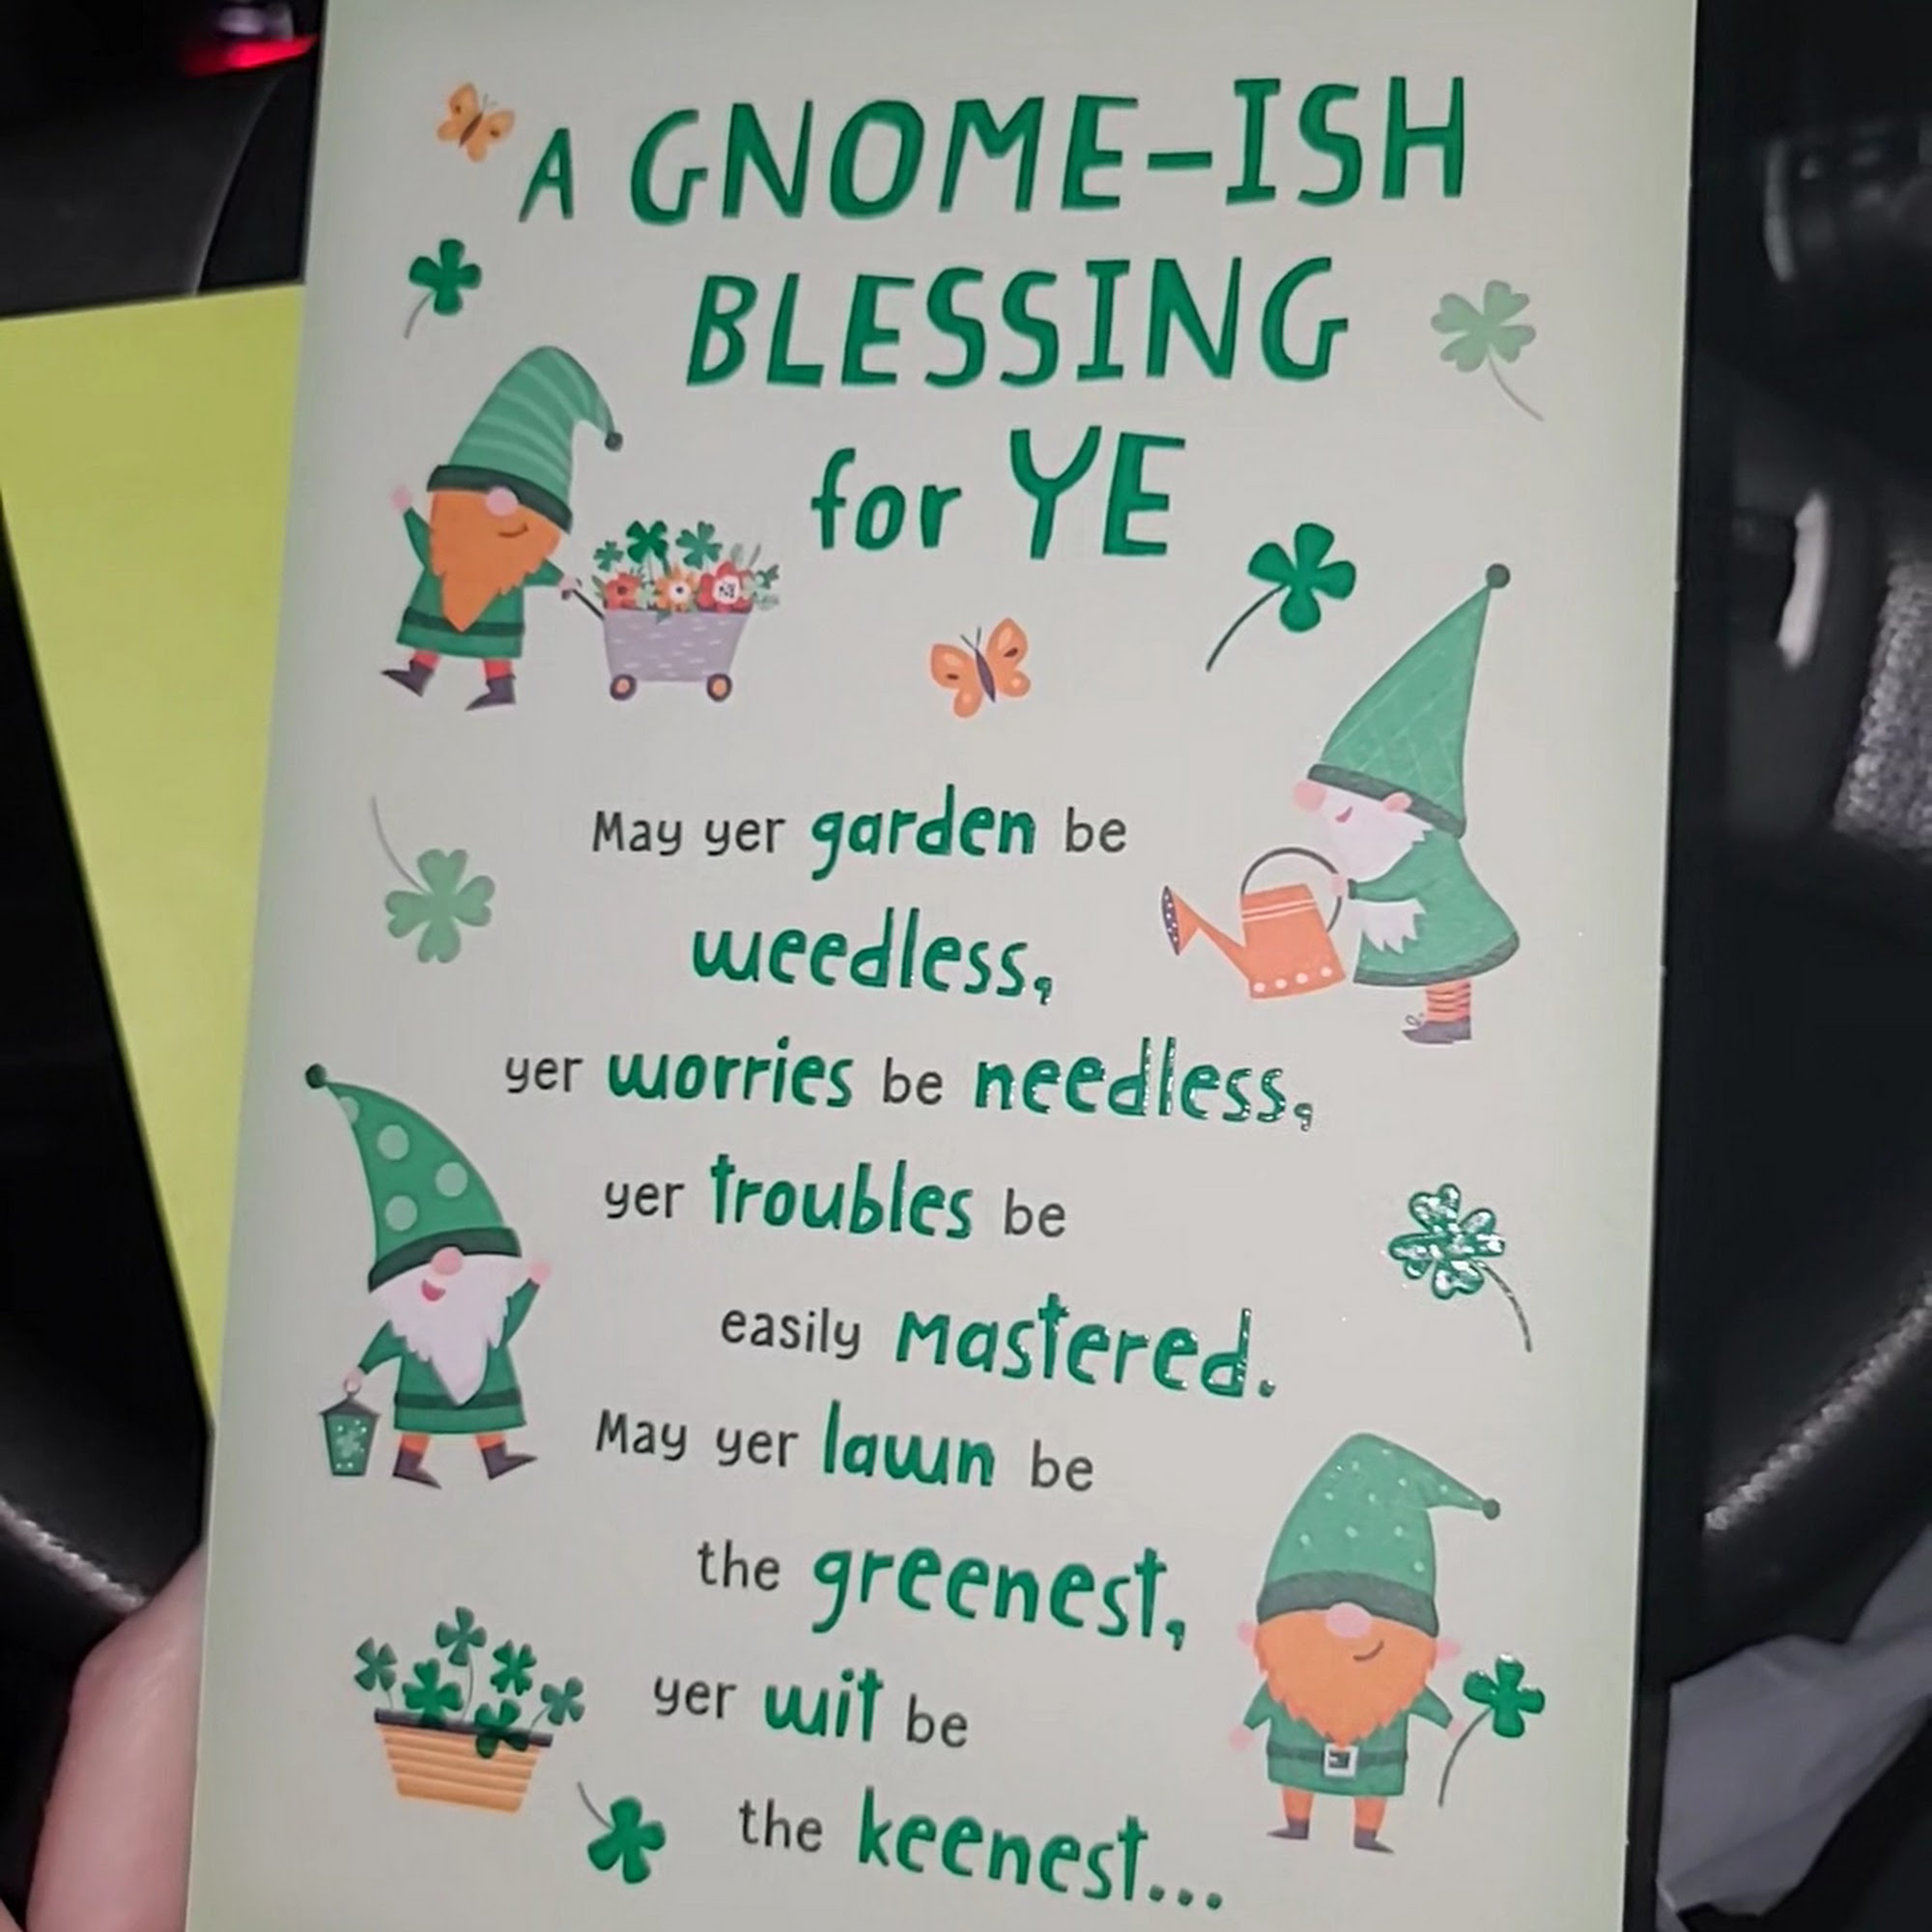 A GNOME-ISH
BLESSING
for YE
May yer garden be
weedless,
yer worries be needless,
yer troubles be
easily mastered.
May yer lawn be
the greenest,
yer wit be
the keenest...